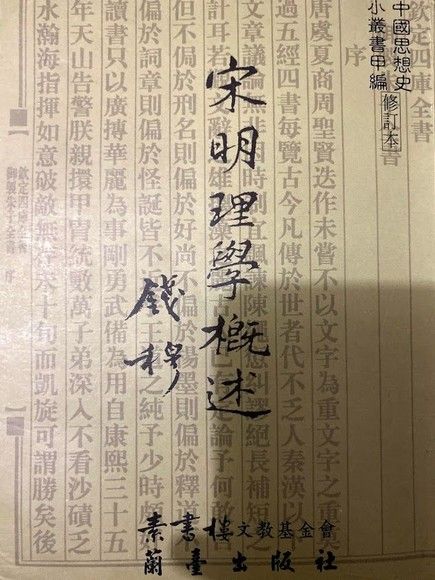 中國思想史
小叢書甲編
修訂本
宋明理學概述
錢穆
素書樓文教基金會
蘭臺出版社
欽定四庫全書
序
唐虞夏商周聖賢迭作未嘗不以文字為重文字之重
過五經四書每覽古今凡傳於世者代不乏人秦漢以
文章議論無非時制宜諷諫陳思糾謬絕長補短之
計耳若雄定論予何敢
但不偏於刑名則偏於好尚不偏於楊墨則偏於釋道
偏於詞章則偏於怪誕皆不王之純予少時頗
讀書只以廣搏華麗為事剛勇武備為用自康熙三十五
年天山告警朕親擐甲冑統數萬子弟深入不沙磧乏
水瀚海指揮如意破敵無存未十旬而凱旋可謂勝矣後
欽定四庫全書
御製朱子全書 序